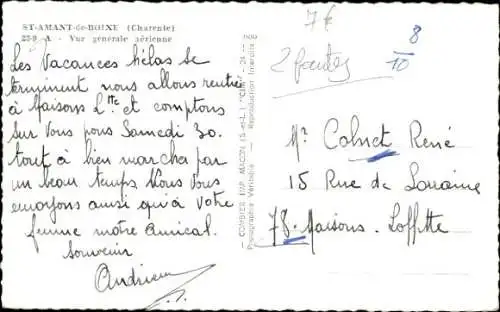 ST-AMANT-de-BOIXE (Charente)
23-9 A - Vue générale aérienne
Les Vacances hélas se
terminent nous allons rentrer
à Maisons Ltte et comptons
sur Vous pour Samedi 30.
tout à bien marcha par
un beau temps Nous Vous
envoyons ainsi qu'à Votre
femme notre Amical
Souvenir
Andrieu
COMBIER IMP. MACON (S.-et-L.) "CIM"
Photographie Véritable - Reproduction Interdite
7€
2 fautes
8
10
Mr Colnet René
15 Rue de Lorraine
78. Maisons. Laffitte